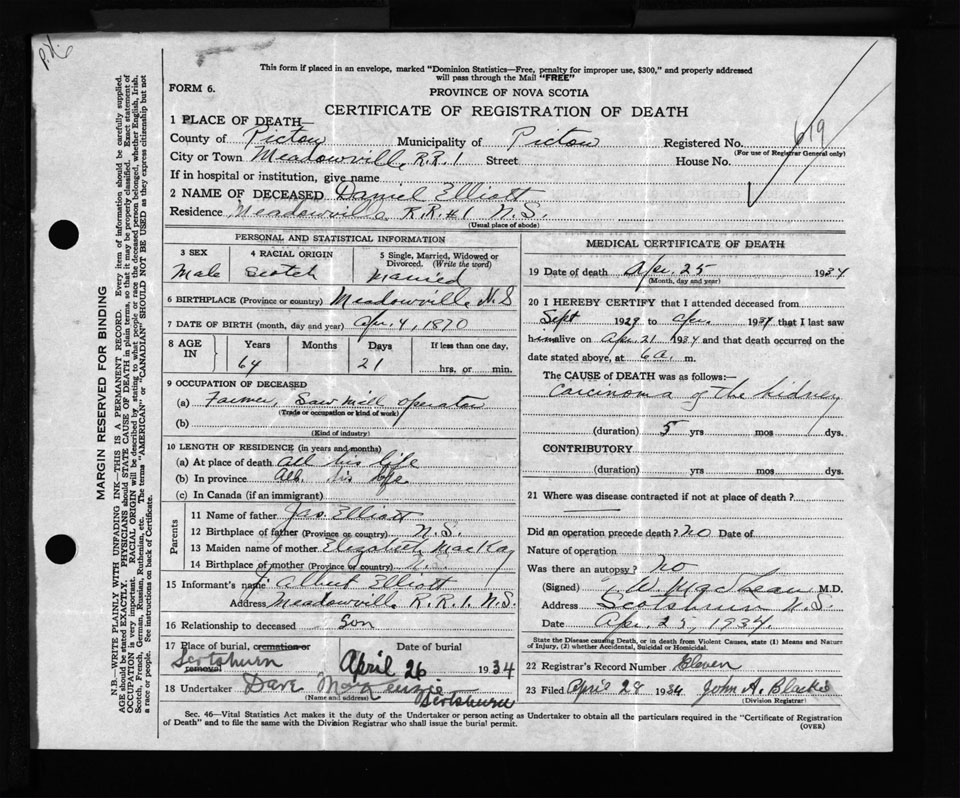 This form if placed in an envelope, marked "Dominion Statistics—Free, penalty for improper use, $300," and properly addressed
will pass through the Mail "FREE"
FORM 6.
PROVINCE OF NOVA SCOTIA
CERTIFICATE OF REGISTRATION OF DEATH
619
1 PLACE OF DEATH—
County of Pictou Municipality of Pictou Registered No.
(For use of Registrar General only)
City or Town Meadowville R.R.1 Street House No.
If in hospital or institution, give name
2 NAME OF DECEASED Daniel Elliott
Residence Meadowville R.R.#1 N.S.
(Usual place of abode)
MARGIN RESERVED FOR BINDING
N.B.—WRITE PLAINLY WITH UNFADING INK—THIS IS A PERMANENT RECORD. Every item of information should be carefully supplied.
AGE should be stated EXACTLY. PHYSICIANS should STATE CAUSE OF DEATH in plain terms, so that it may be properly classified. Exact statement of
OCCUPATION is very important. RACIAL ORIGIN will be described by stating to what people or race the deceased person belonged, whether English, Irish,
Scotch, French, German, Russian, Ruthenian, etc. The terms "AMERICAN" or "CANADIAN" SHOULD NOT BE USED as they express citizenship but not
a race or people. See instructions on back of Certificate.
PERSONAL AND STATISTICAL INFORMATION
3 SEX 4 RACIAL ORIGIN 5 Single, Married, Widowed or
Divorced. (Write the word)
Male Scotch Married
6 BIRTHPLACE (Province or country) Meadowville N.S
7 DATE OF BIRTH (month, day and year) Apr. 4, 1870
8 AGE IN Years Months Days If less than one day,
64 21 hrs. or min.
9 OCCUPATION OF DECEASED
(a) Farmer, Saw mill operator
(Trade or occupation or kind of work)
(b)
(Kind of industry)
10 LENGTH OF RESIDENCE (in years and months)
(a) At place of death all his life
(b) In province All his life
(c) In Canada (if an immigrant)
Parents
11 Name of father Jas. Elliott
12 Birthplace of father (Province or country) N.S.
13 Maiden name of mother Elizabeth MacKay
14 Birthplace of mother (Province or country) N.S.
15 Informant's name J. Albert Elliott
Address Meadowville R.R.1. N.S.
16 Relationship to deceased Son
17 Place of burial, cremation or Date of burial
removal Scotsburn April 26 1934
18 Undertaker Dave MacKenzie
(Name and address) Scotsburn
MEDICAL CERTIFICATE OF DEATH
19 Date of death Apr. 25 1934
(Month, day and year)
20 I HEREBY CERTIFY that I attended deceased from
Sept 1929 to Apr. 1934 that I last saw
him alive on Apr 21 1934 and that death occurred on the
date stated above, at 6 a. m.
The CAUSE of DEATH was as follows:—
Carcinoma of the kidney
(duration) 5 yrs mos dys.
CONTRIBUTORY
(duration) yrs mos dys.
21 Where was disease contracted if not at place of death?
Did an operation precede death? No Date of
Nature of operation
Was there an autopsy? No
(Signed) W. MacLean M.D.
Address Scotsburn N.S.
Date Apr. 25, 1934.
State the Disease causing Death, or in death from Violent Causes, state (1) Means and Nature
of Injury, (2) whether Accidental, Suicidal or Homicidal.
22 Registrar's Record Number Eleven
23 Filed April 28 1934 John A. Blackie
(Division Registrar)
Sec. 46—Vital Statistics Act makes it the duty of the Undertaker or person acting as Undertaker to obtain all the particulars required in the "Certificate of Registration
of Death" and to file the same with the Division Registrar who shall issue the burial permit.
(OVER)